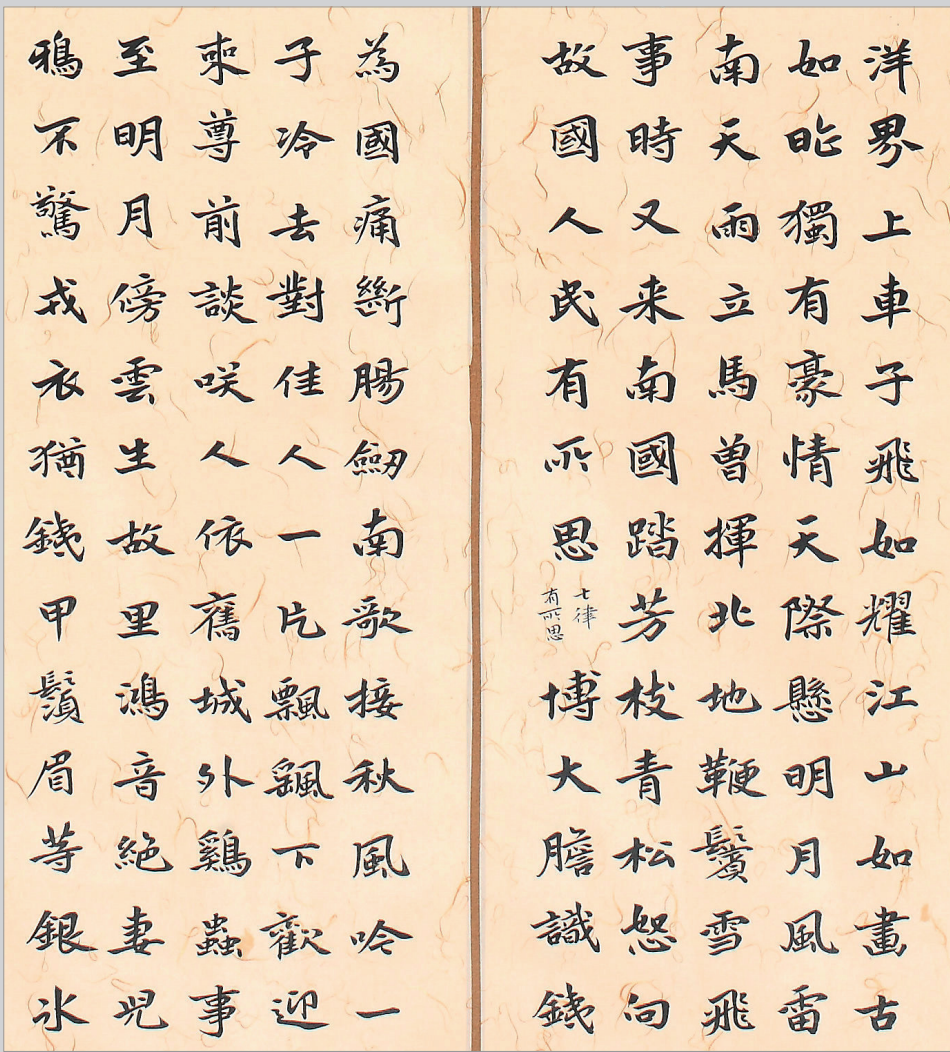 洋界上車子飛如耀江山如畫古
如昨獨有豪情天際懸明月風雷
南天雨立馬曾揮北地鞭鬢雪飛
事時又来南國踏芳枝青松恕向
故國人民有所思
七律
有所思
博大膽識鐵
為國痛斷腸劒南歌接秋風吟一
子冷去對佳人一片飄飖下歡迎
來尊前談咲人依舊城外鷄蟲事
至明月傍雲生故里鴻音絕妻兒
鴉不驚戎衣猶鐵甲鬚眉等銀冰